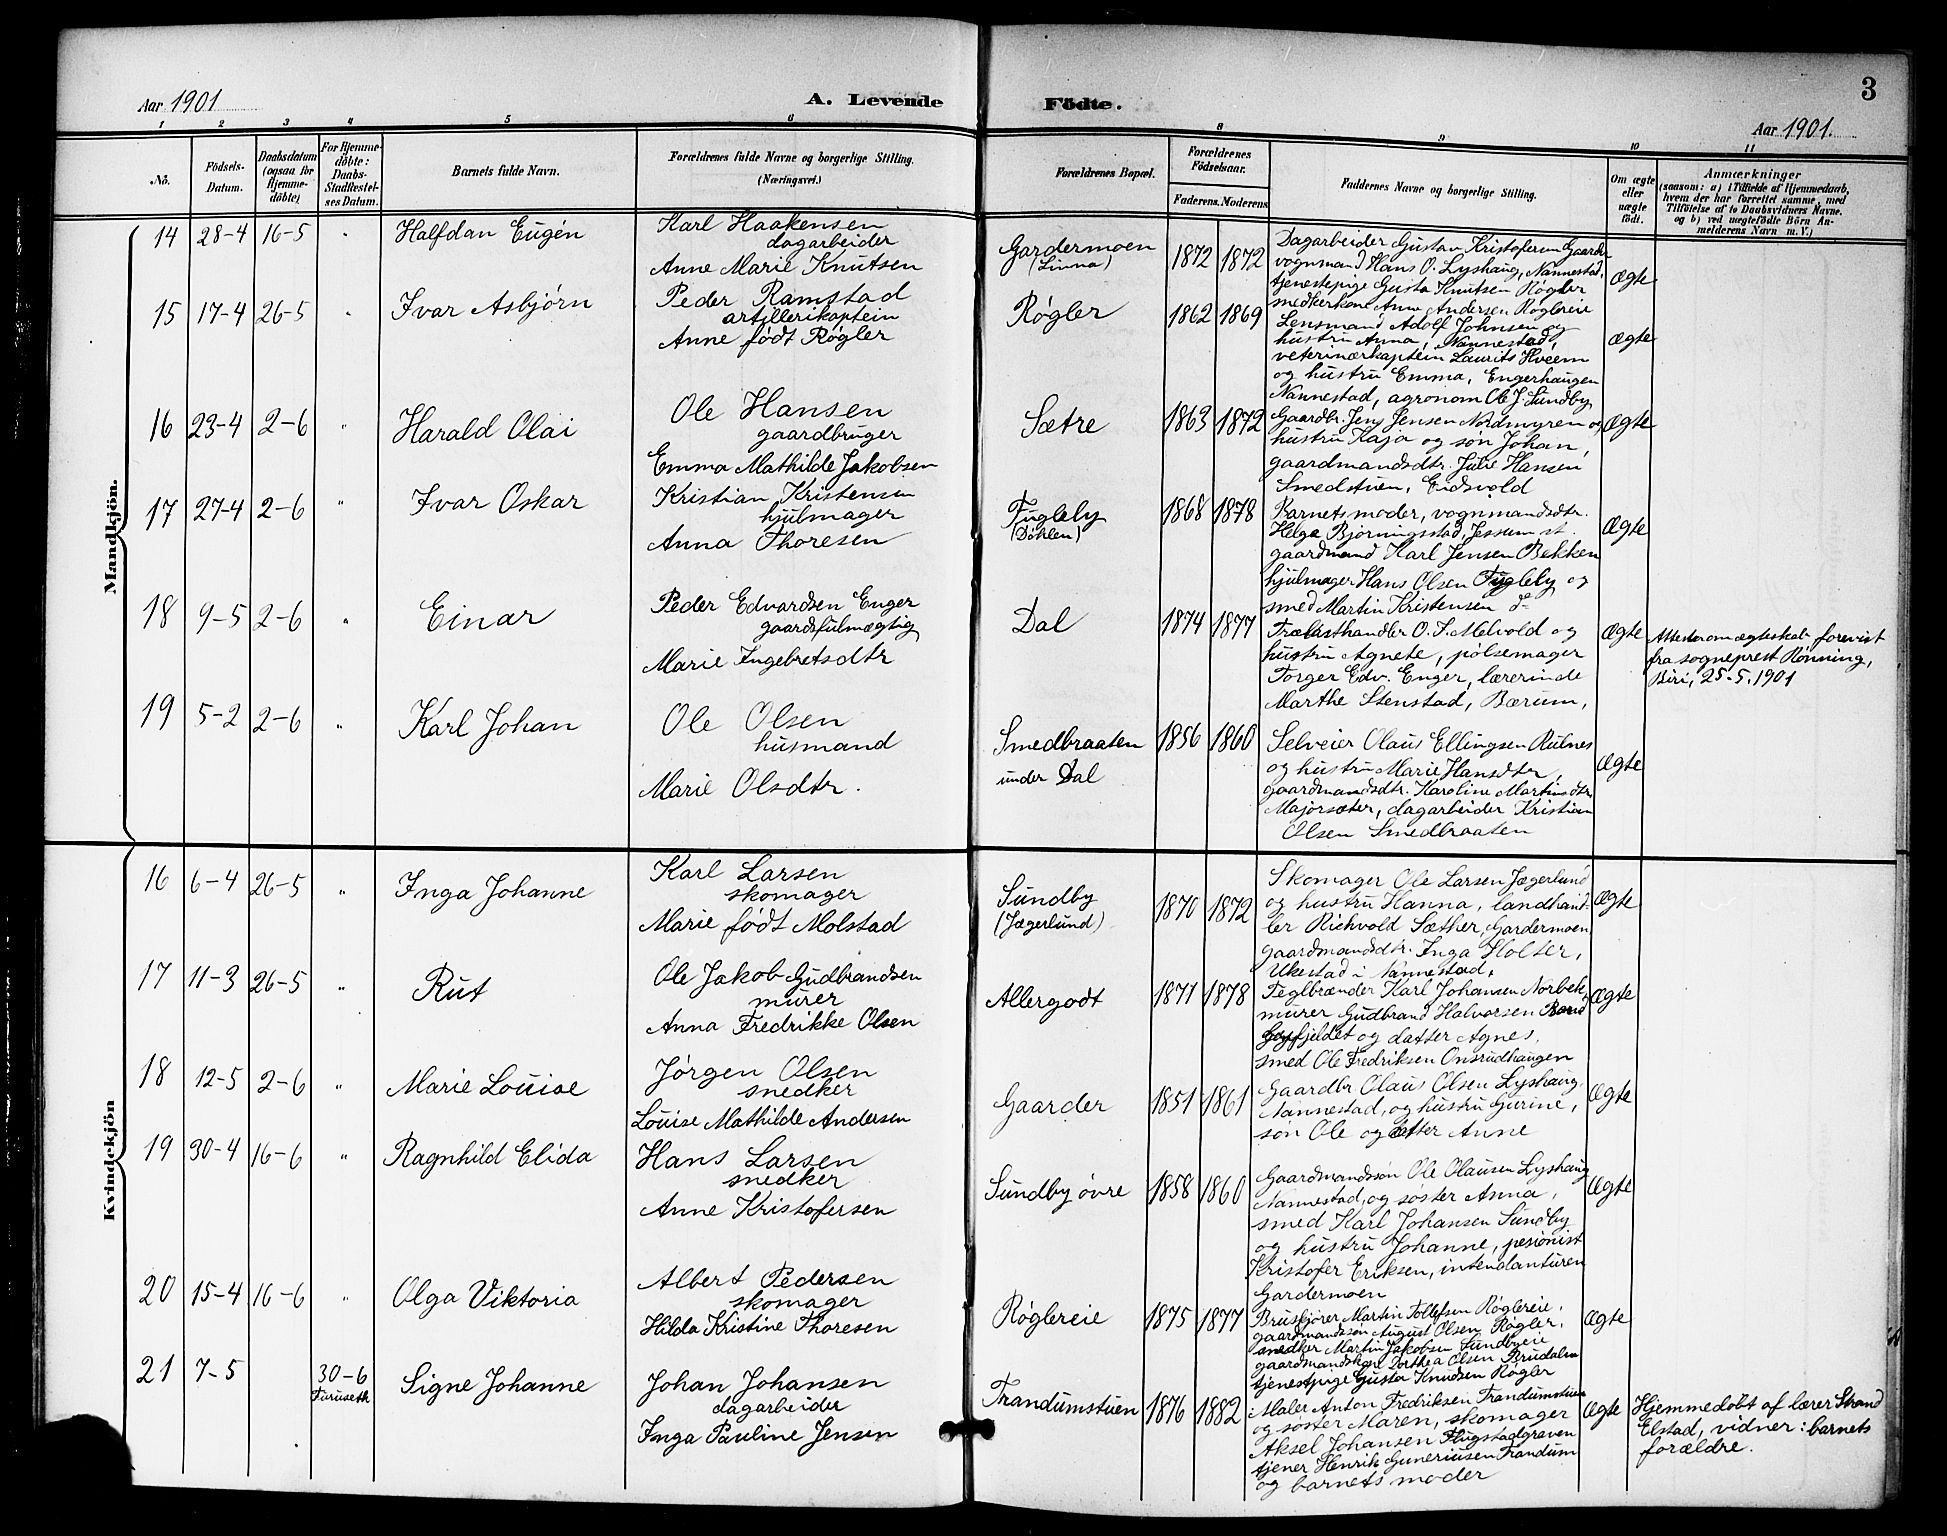 Aar 1901
A. Levende
1 2 3 4 5 6
No.
Födsels-
Datum.
Daabsdatum
(ogsaa for
Hjemme-
döbte)
For Hjemme-
döbte:
Daabs-
Stadfæstel-
ses Datum.
Barnets fulde Navn.
Forældrenes fulde Navne og borgerlige Stilling.
(Næringsvei.)
Mandkjön.
14 28-4 16-5 " Halfdan Eugén
Karl Haakensen
dagarbeider
Anne Marie Knutsen
15 17-4 26-5 " Ivar Asbjørn
Peder Ramstad
artillerikaptein
Anne født Røgler
16 23-4 2-6 " Harald Olai
Ole Hansen
gaardbruger
Emma Mathilde Jakobsen
17 27-4 2-6 " Ivar Oskar
Kristian Kristensen
hjulmager
Anna Thoresen
18 9-5 2-6 " Einar
Peder Edvardsen Enger
gaardsfulmægtig
Marie Ingebretsdtr
19 5-2 2-6 " Karl Johan
Ole Olsen
husmand
Marie Olsdtr.
Kvindekjön
16 6-4 26-5 " Inga Johanne
Karl Larsen
skomager
Marie født Molstad
17 11-3 26-5 " Rut
Ole Jakob Gudbrandsen
murer
Anna Fredrikke Olsen
18 12-5 2-6 " Marie Louise
Jørgen Olsen
snedker
Louise Mathilde Andersen
19 30-4 16-6 " Ragnhild Elida
Hans Larsen
snedker
Anne Kristofersen
20 15-4 16-6 " Olga Viktoria
Albert Pedersen
skomager
Hilda Kristine Thoresen
21 7-5 30-6
Furuseth
Signe Johanne
Johan Johansen
dagarbeider
Inga Pauline Jensen
Födte.
3
Aar 1901.
8 9 10 11
Forældrenes Bopæl.
Forældrenes
Födselsaar.
Faderens. Moderens.
Faddernes Navne og borgerlige Stilling.
Om ægte
eller
uægte
født.
Anmærkninger
(saasom: a) i Tilfælde af Hjemmedaab,
hvem der har forrettet samme, med
Tilföielse af to Daabsvidners Navne.
og b) ved uægtefödte Börn An-
melderens Navn m. V.)
Gardermoen
(Linna)
1872 1872
Dagarbeider Gustav Kristofersen Gaarder
vognmand Hans O. Lyshaug, Nannestad,
tjenestepige Gusta Knutsen Røgler
snedkerkone Anne Andersen Røglereie
Ægte
Røgler
1862 1869
Lensmand Adolf Johnsen og
hustru Anna, Nannestad,
veterinærkaptein Laurits Hveem
og hustru Emma, Engerhaugen
Nannestad, agronom Ole J. Sundby
Ægte
Sætre
1863 1872
Gaardbr. Jens Jensen Nordmyren og
hustru Kaja og søn Johan,
gaardmandsdtr. Julie Hansen
Smedstuen, Eidsvold
Ægte
Fugleby
(Døhlen)
1868 1878
Barnets moder, vognmandsdtr.
Helga Bjørningstad, Jessum st.
gaardmand Karl Jensen Bekken
hjulmager Hans Olsen Fugleby og
smed Martin Kristensen
Ægte
Dal
1874 1877
Trælasthandler O. S. Melvold og
hustru Agnete, pølsemager
Torger Edv. Enger, lærerinde
Marthe Stenstad, Bærum,
Ægte
Attest om ægteskab forevist
fra sogneprest Rønning,
Biri, 25-5.1901
Smedbraaten
under Dal
1856 1860
Selveier Olaus Ellingsen Rulnes
og hustru Marie Hansdtr,
gaardmandsdtr. Karoline Martinsdtr.
Majorsæter, dagarbeider Kristian
Olsen Smedbraaten
Ægte
Sundby
(Jægerlund)
1870 1872
Skomager Ole Larsen Jægerlund
og hustru Hanna, landhand-
ler Richvold Sæther, Gardermoen
gaardmandsdtr. Inga Holter,
Ukestad i Nannestad,
Ægte
Allergodt
1871 1878
Teglbrænder Karl Johansen Norbek,
murer Gudbrand Halvorsen
og datter Agnes,
smed Ole Fredriksen Onsrudhaugen
Ægte
Gaarder
1851 1861
Gaardbr. Olaus Olsen Lyshaug
Nannestad, og hustru Gurine,
søn Ole og datter Anne
Ægte
Sundby øvre
1858 1860
Gaardmandssøn Ole Olausen Lyshaug
Nannestad, og søster Anna,
smed Karl Johansen Sundby
og hustru Johanne, pesionist
Kristofer Eriksen, intendanturen
Gardermoen
Ægte
Røglereie
1875 1877
Bruskjører Martin Tollefsen Røglereie,
gaardmandssøn August Olsen Røgler,
snedker Martin Jakobsen Sundbyeie
gaardmandskone Dorthea Olsen Brudalen
tjenestpige Gusta Knudsen Røgler
Ægte
Trandumstuen
1876 1882
Maler Anton Fredriksen Trandumstuen
og søster Maren, skomager
Aksel Johansen Flugstadgraven
tjener Henrik Guneriusen Trandum
og barnets moder
Ægte
Hjemmedøbt af lærer Strand
Elstad, vidner: barnets
forældre.